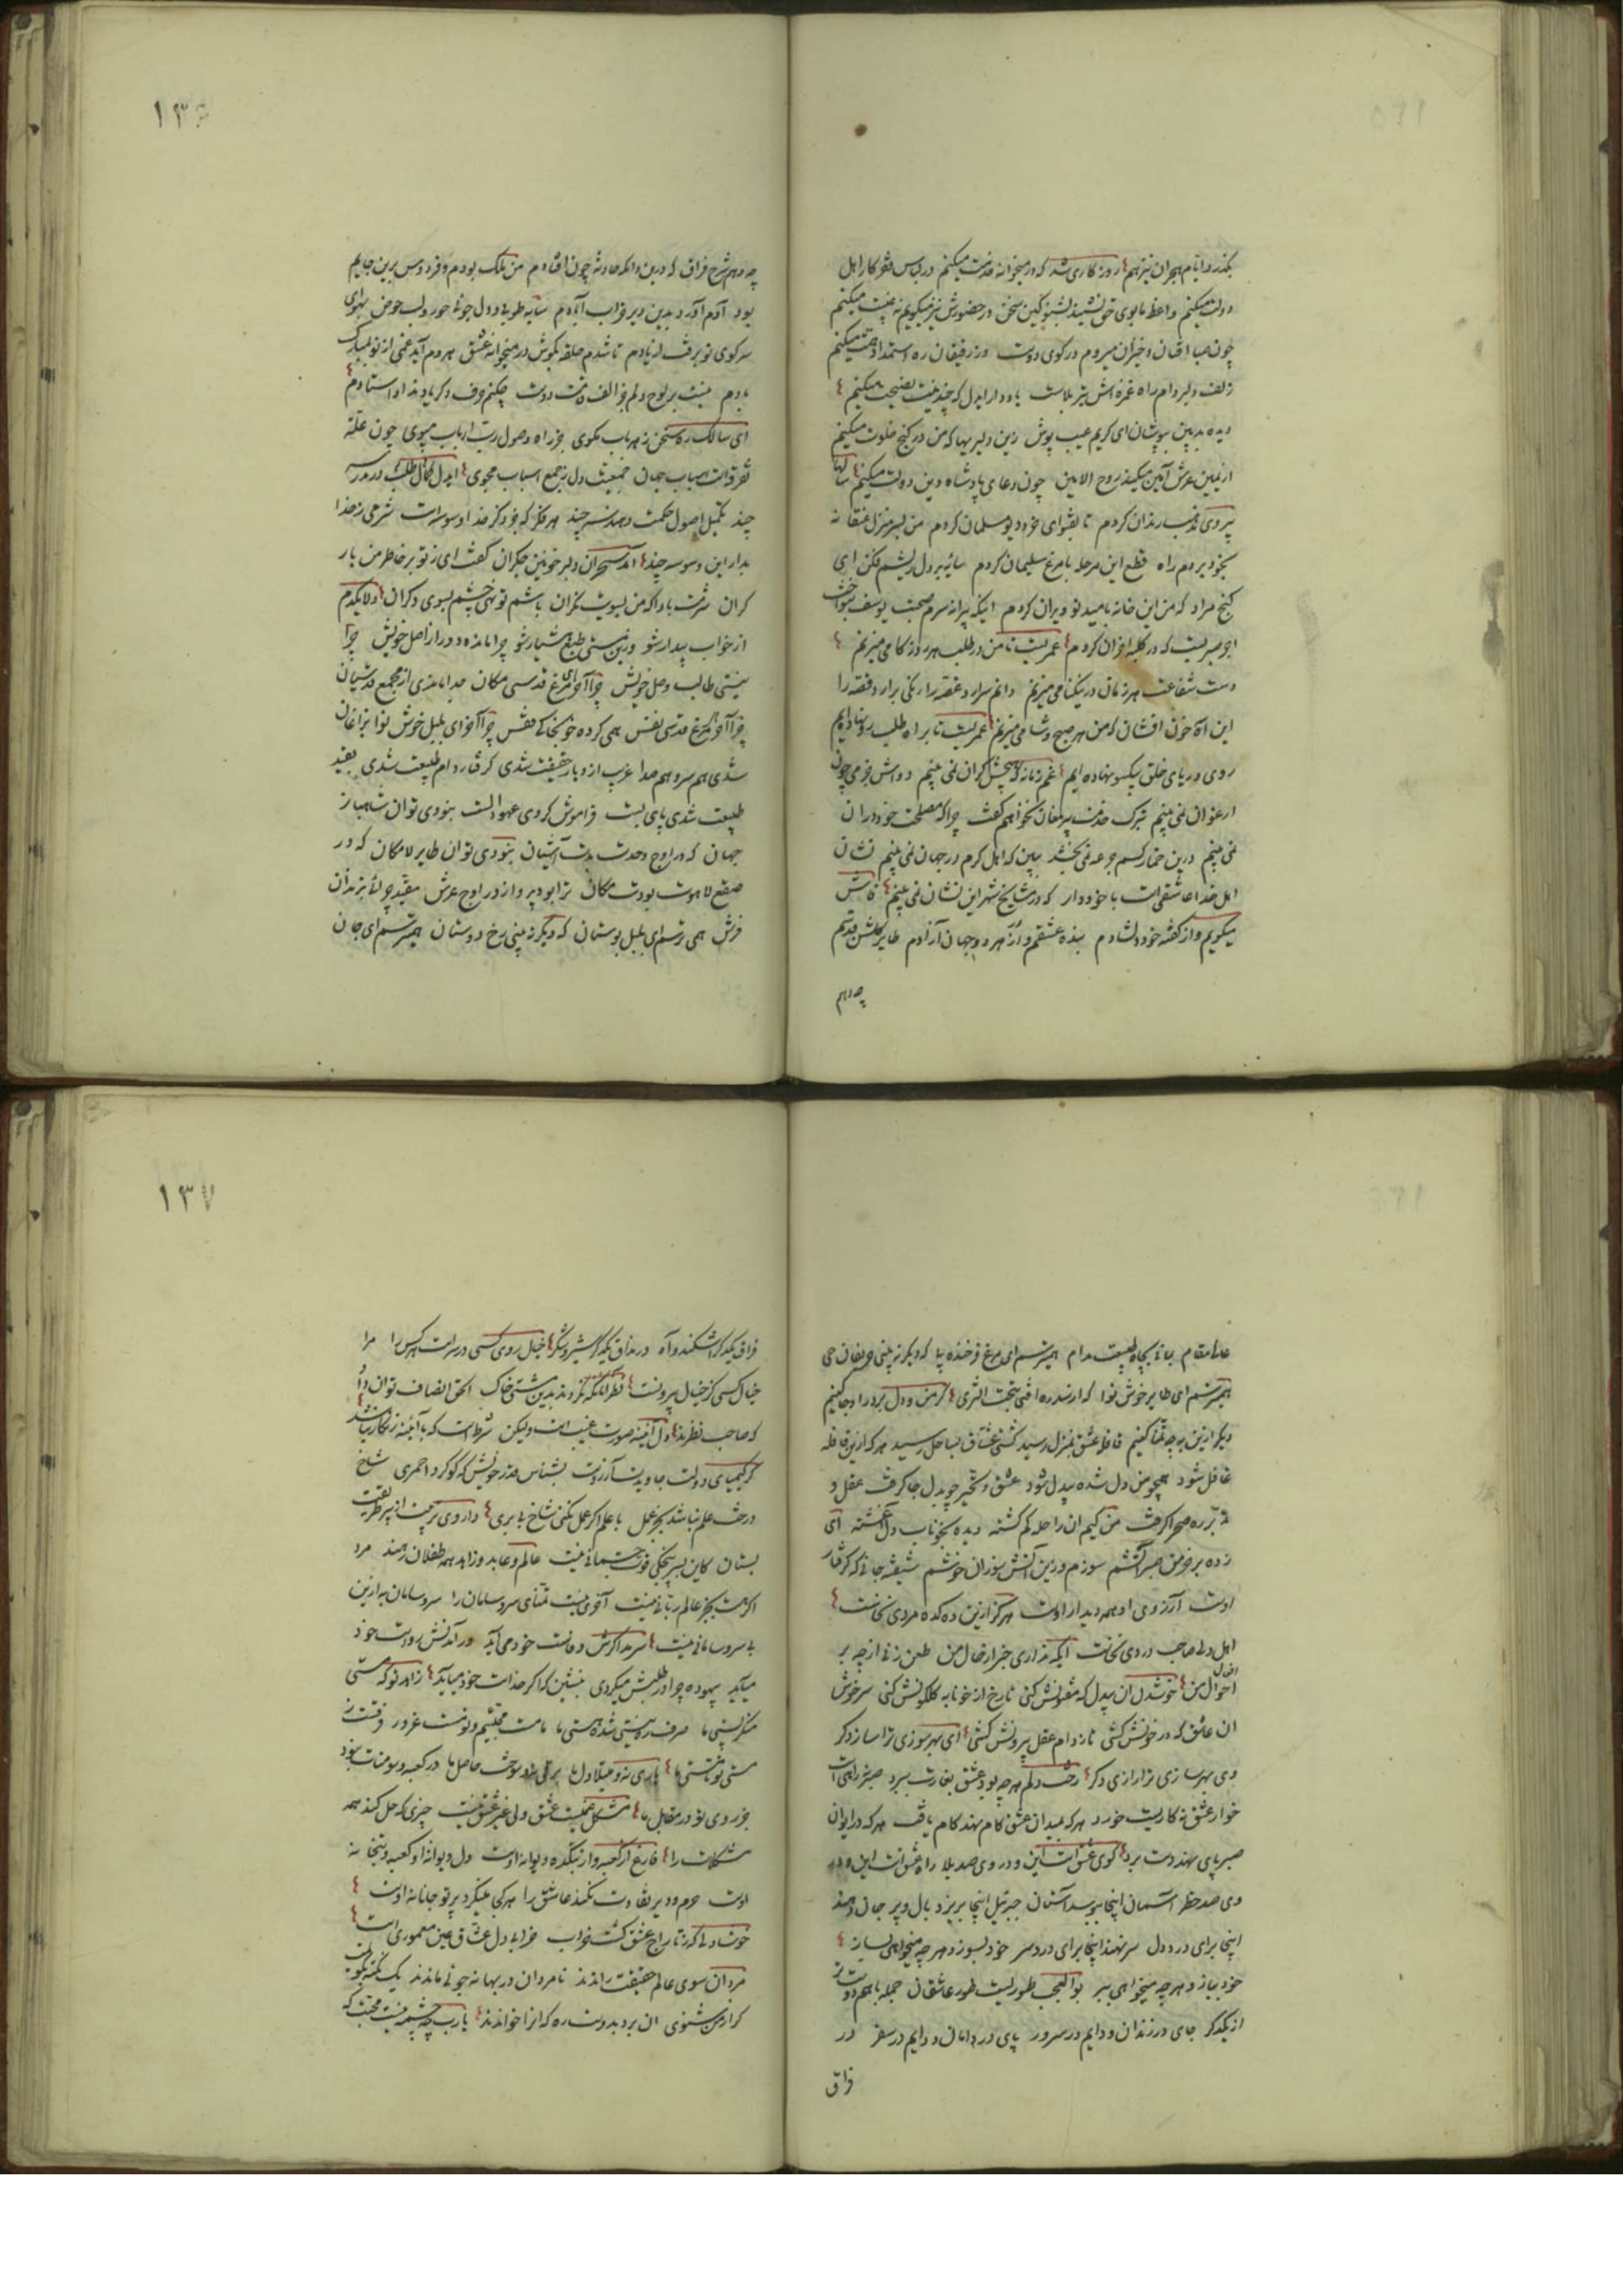 بگذرد ایام هجران نیز هم روزگاری شد که در میخانه خدمت میکنم در لباس فقر کار اهل
دولت میکنم واعظ ما بوی حق نشنید بشنو کین سخن در حضورش نیز میگویم نه غیبت میکنم
چون صبا افتان و خیزان میروم در کوی دوست وز رفیقان ره استمداد همت میکنم
زلف دلبر دام راه غمزه اش تیر بلاست یاد دار ایدل که چندینت نصیحت میکنم
دیده بدبین بپوشان ای کریم عیب پوش زین دلیریها که من در کنج خلوت میکنم
از یمین عرش آمین میکند روح الامین چون دعای پادشاه دین و دولت میکنم سالها
پیروی مذهب رندان کردم تا بفتوای خرد دیو مسلمان کردم من بسرمنزل عنقا نه
بخود بردم راه قطع این مرحله با مرغ سلیمان کردم سایه بر دل ریشم فکن ای
گنج مراد که من این خانه بامید تو ویران کردم اینکه پیرانه سرم صحبت یوسف بنواخت
اجر صبریست که در کلبه احزان کردم عمریست تا من در طلب هر روز گامی میزنم
دست شفاعت هر زمان در نیکنامی میزنم دانم سرآرد غصه را رنگین برآرد قصه را
این آه خون افشان که من هر صبح و شامی میزنم عمریست تا براه طلب رو نهاده ایم
روی و ریای خلق بیکسو نهاده ایم غم زمانه که هیچش کران نمی بینم دواش جز می چون
ارغوان نمی بینم بترک خدمت پیر مغان نخواهم گفت چرا که مصلحت خود در آن
نمی بینم درین خمار کسم جرعه نمی بخشد ببین که اهل کرم در جهان نمی بینم نشان
اهل خدا عاشقی است با خود دار که در مشایخ شهر این نشان نمی بینم فاش
میگویم و از گفته خود دلشادم بنده عشقم و از هر دو جهان آزادم طایر گلشن قدسم
چه دهم
۱۳۶
چه دهم شرح فراق که درین دامگه حادثه چون افتادم من ملک بودم و فردوس برین جایم
بود آدم آورد بدین دیر خراب آبادم سایه طوبی و دلجوئی حور و لب حوض بهوای
سر کوی تو برفت از یادم تا شدم حلقه بگوش در میخانه عشق هر دم آید غمی از نو بمبارک
بادم نیست بر لوح دلم جز الف قامت دوست چکنم حرف دگر یاد نداد استادم
ای سالک ره سخن ز هر باب مگوی جز راه وصول رب ارباب مپوی چون علت
تفرقه است اسباب جهان جمعیت دل ز جمع اسباب مجوی ایدل طلب کمال در مدرسه
چند تکمیل اصول حکمت و هندسه چند هر فکر که جز ذکر خدا وسوسه است شرمی ز خدا
بدار این وسوسه چند آمد سحر آن دلبر خونین جگران گفت ای ز تو بر خاطر من بار
گران شرمت بادا که من بسویت نگران باشم تو نهی چشم بسوی دگران دلا یکدم
از خواب بیدار شو وزین مستی طبع هشیار شو چرا مانده دور از اصل خویش چرا
نیستی طالب وصل خویش چرا آخر ای مرغ قدسی مکان جدا ماندی از مجمع قدسیان
چرا آخر ای مرغ قدسی نفس همی کرده خو بخاک قفس چرا آخر ای بلبل خوش نوا بزاغان
شدی همسر و هم صدا غریب از دیار حقیقت شدی گرفتار دام طبیعت شدی بقید
طبیعت شدی پای بست فراموش کردی عهد الست نبودی تو آن شاهباز
جهان که در اوج وحدت بدت آشیان نبودی تو آن طایر لامکان که در
صقع لاهوت بودت مکان ترا بود پرواز در اوج عرش مقید چرائی بزندان
فرش همی ترسم ای بلبل بوستان که دیگر نبینی رخ دوستان همی ترسم ای جان
علیا مقام بمانی بچاه طبیعت مدام همی ترسم ای مرغ فرخنده پا که دیگر نبینی حریفان حی
همی ترسم ای طایر خوش نوا که از سدره افتی بتحت الثری گر من و دل بر در او جا کنیم
دیگر ازین به چه تمنا کنیم قافله عشق بمنزل رسید کشتی عشاق بساحل رسید هر که ازین قافله
غافل شود همچو من دل شده بیدل شود عشق و تحیر چو بدل جا گرفت عقل و
تدبر ره صحرا گرفت من کیم آن راحله گم گشته دیده بخوناب دل آغشته ای
زده بر خرمن صبر آتشم سوزم و در این آتش سوزان خوشم شیفته جانی که گرفتار
اوست آرزوی او همه دیدار اوست هر که ازین ده کده مردی نخاست
اهل دلی صاحب دردی نخاست ایکه نداری خبر از حال من طعن زنی از چه بر
احوال من خوشدل آن بیدل که مفتونش کنی رخ از خونابه گلگونش کنی سرخوش
آن عاشق که در خونش کشی تا ز دام عقل بیرونش کشی ای بهر سوزی ترا سازی دگر
وی بهر سازی ترا رازی دگر رخت دلم هر چه بود عشق بغارت ببرد
خوار عشق نه کاریست خرد هر که بمیدان عشق گام نهد کام یافت هر که در ایوان
صبر پای نهد دست برد کوی عشق است این و در وی صد بلا راه عشق است این و در
وی صد خطر آسمان اینجا ببوسد آستان جبرئیل اینجا بریزد بال و پر جان دهند
اینجا برای درد دل سر نهند اینجا برای دردسر خود بسوز و هر چه میخواهی بساز
خود بباز و هر چه میخواهی ببر بوالعجب طوریست طور عاشقان جمله با هم دوست‌تر
از یکدگر جای در زندان و دایم در سرور پای در دامان و دایم در سفر در
فراق
۱۳۷
فراق یکدگر اشکند و آه در مذاق یکدگر شیر و شکر خیال روی کسی در سر است هر کس را مرا
خیال کسی کز خیال بیرونست بدین مشتی خاک الحق انصاف توان داد
که صاحب نظرند دل آئینه صورت غیب است ولیکن شرط است که بر آئینه زنگار نباشد
گر کیمیای دولت جاویدت آرزوست بشناس قدر خویش که گوگرد احمری شاخ
درخت علم نباشد بجز عمل با علم اگر عمل نکنی شاخ بی بری داروی تربیت از پیر طریقت
بستان عالم و عابد و زاهد همه طفلان رهند مرد
اگر هست بجز عالم ربانی نیست آخری نیست تمنای سر و سامان را سر و سامان به ازین
بی سر و سامانی نیست سرمد اگرش وفاست خود می آید ور آمدنش رواست خود
میآید بیهوده چرا در طلبش میگردی بنشین که اگر خداست خود میآید زاهد تو که مستی
منکر پستی ما صرف ره نیستی شده هستی ما ما مست محبتیم و تو مست غرور
مستی تو تا مستی ما
بجز روی تو در مقابل ما مشکل عجبیست عشق ولی غیر عشق نیست چیزی که حل کند همه
مشکلات را فارغ از کعبه و از بتکده دیوانه اوست دل دیوانه او کعبه و بتخانه
اوست حرم و دیر تفاوت نکند عاشق را هر کجا مینگرد پرتو جانانه اوست
خوشا دلی که ز تاراج عشق گشت خراب خرابی دل عشاق عین معموری است
مردان سوی عالم حقیقت راندند نامردان در بهانه جوئی ماندند یک نکته بگویمت
گر از من شنوی آن برد بدوست ره که آنرا خواندند یا رب چه چشمه ایست محبت که